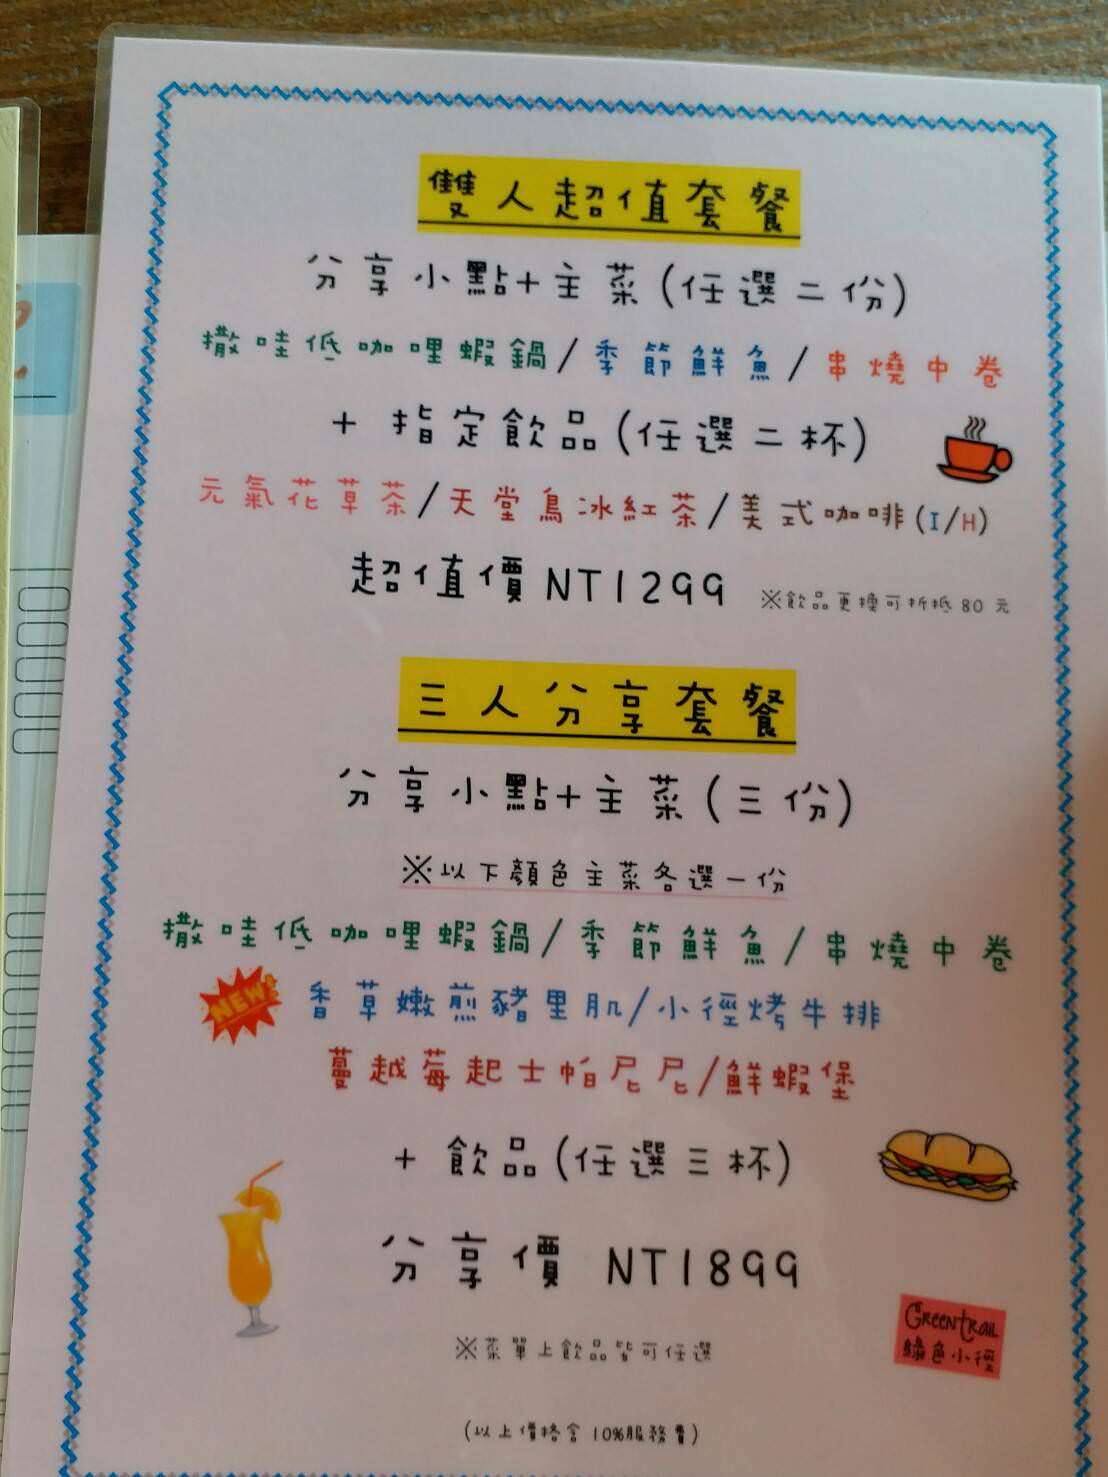 雙人超值套餐
分享小點+主菜(任選二份)
撒哇低咖哩蝦鍋/季節鮮魚/串燒中卷
+ 指定飲品(任選二杯)
元氣花草茶/天堂鳥冰紅茶/美式咖啡(I/H)
超值價NT1299 ※飲品更換可折抵80元
三人分享套餐
分享小點+主菜(三份)
※以下顏色主菜各選一份
撒哇低咖哩蝦鍋/季節鮮魚/串燒中卷
NEW!
香草嫩煎豬里肌/小徑烤牛排
蔓越莓起士帕尼尼/鮮蝦堡
+ 飲品(任選三杯)
分享價 NT1899
Greentrail
綠色小徑
※菜單上飲品皆可任選
(以上價格含10%服務費)